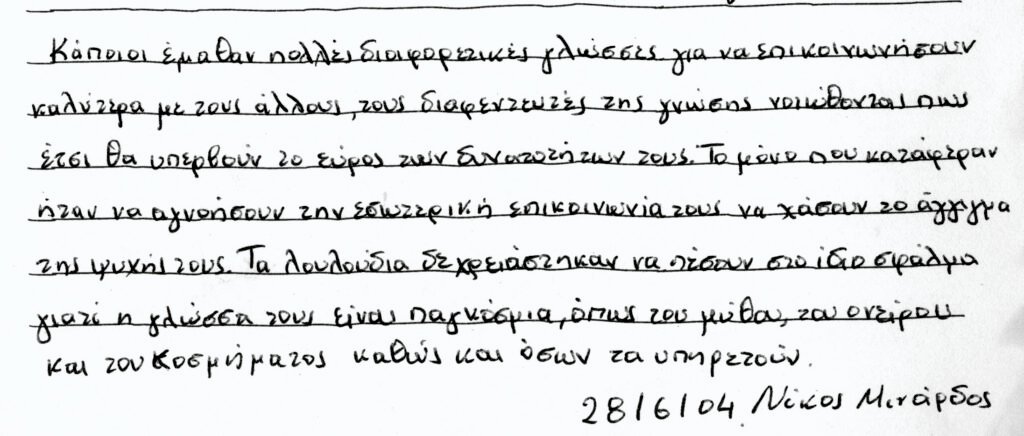 Κάποιοι έμαθαν πολλές διαφορετικές γλώσσες για να επικοινωνήσουν
καλύτερα με τους άλλους, τους διαφεντευτές της γνώσης νοιώθοντας πως
έτσι θα υπερβούν το εύρος των δυνατοτήτων τους. Το μόνο που κατάφεραν
ήταν να αγνοήσουν την εσωτερική επικοινωνία τους να χάσουν το άγγιγμα
της ψυχής τους. Τα λουλούδια δε χρειάστηκαν να πέσουν στο ίδιο σφάλμα
γιατί η γλώσσα τους είναι παγκόσμια, όπως του μύθου, του ονείρου
και του κοσμήματος καθώς και όσων τα υπηρετούν.
28/6/04 Νίκος